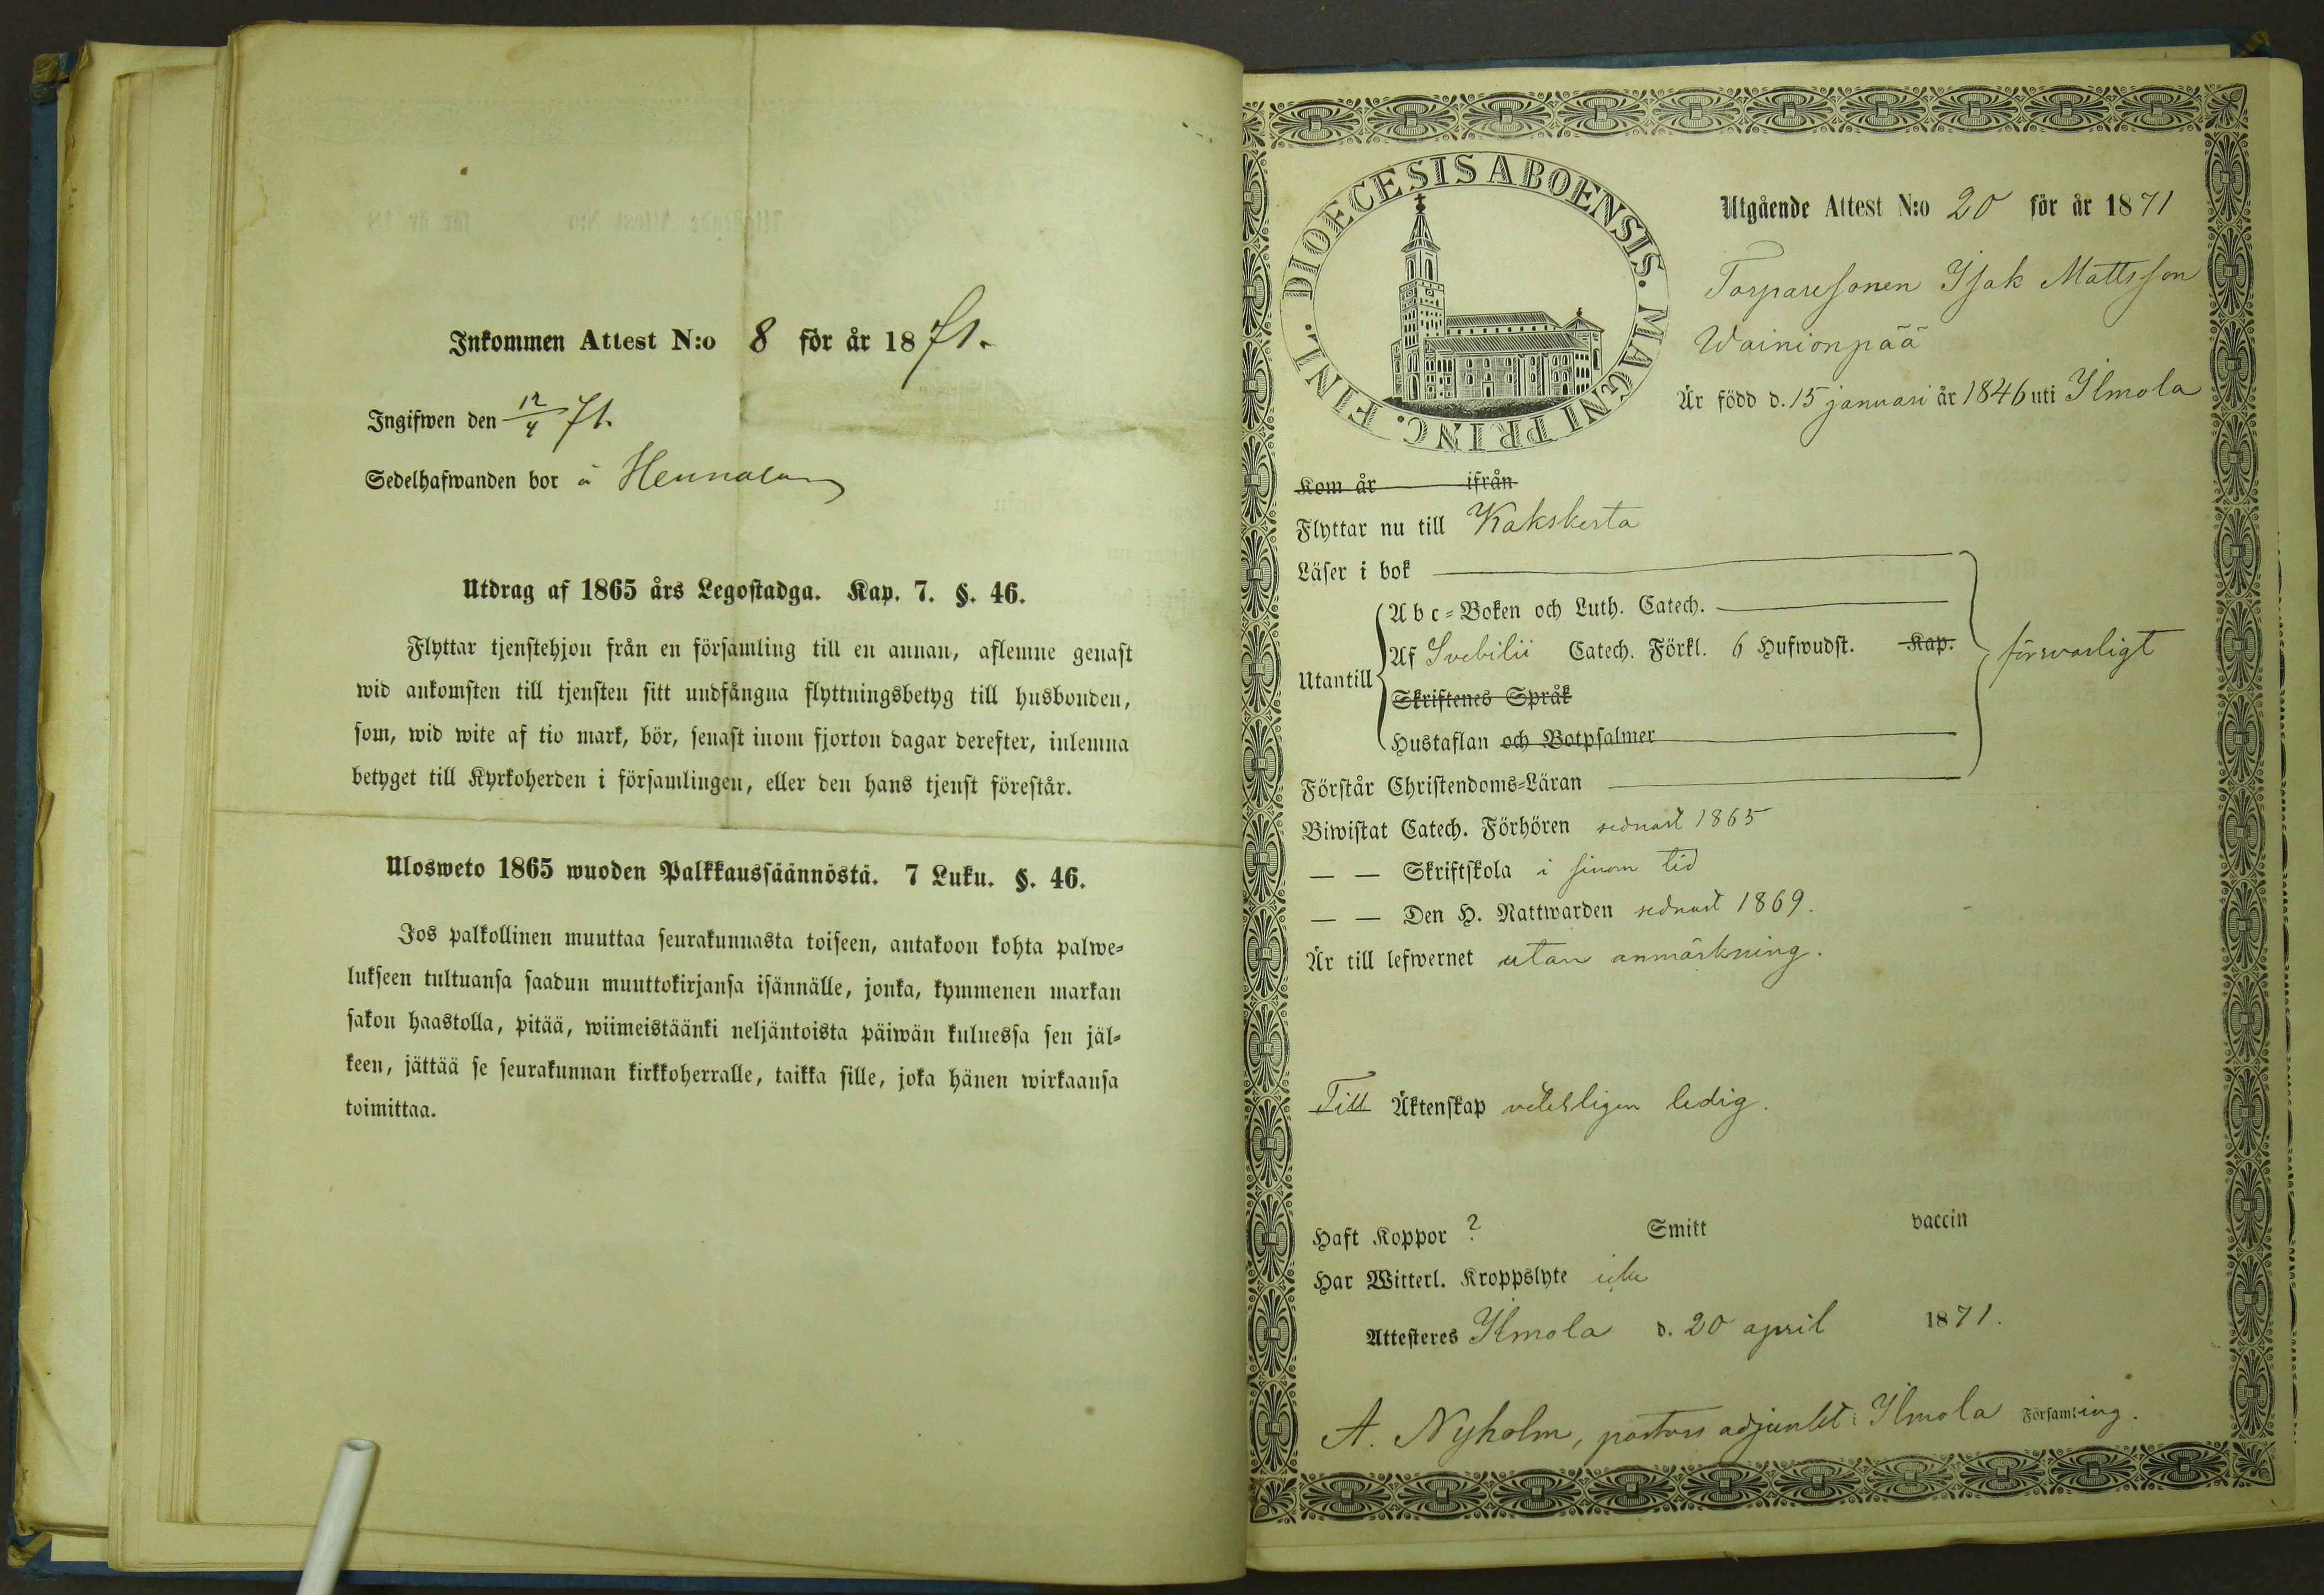 Inkommen Attest N:o 8 för år 1871.
Ingifwen den 12/4 71.
Sedelhafwanden bor å
Utdrag af 1865 års Legostadga. Kap. 7. §. 46.
Flyttar tjenstehjon från en församling till en annan, aflemne genast
wid ankomsten till tjensten sitt undfångna flyttningsbetyg till husbonden,
som, wid wite af tio mark, bör, senast inom fjorton dagar derefter, inlemna
betyget till Kyrkoherden i församlingen, eller den hans tjenst förestår.
Ulosweto 1865 wuoden Palkkaussäännöstä. 7 Luku. §. 46.
Jos palkollinen muuttaa seurakunnasta toiseen, antakoon kohta palwe-
lukseen tultuansa saadun muuttokirjansa isännälle, jonka, kymmenen markan
sakon haastolla, pitää, wiimeistäänki neljäntoista päiwän kuluessa sen jäl-
keen, jättää se seurakunnan kirkkoherralle, taikka sille, joka hänen wirkaansa
toimittaa.
DIOECESIS ABOENSIS. MAGNI PRINC. FINL.
Utgående Attest N:o 20 för år 1871
Torparesonen Isak Mattsson
Wainionpää
Är född d. 15 januari år 1846 uti Ilmola
Kom år ifrån
Flyttar nu till Kakskerta
Läser i bok
Abc-Boken och Luth. Catech.
Utantill Af Svebilii Catech. Förkl. 6 Hufwudst. Kap. försvarligt
Skriftenes Språk
Hustaflan och Botpsalmer
Förstår Christendoms-Läran
Biwistat Catech. Förhören sednast 1865
— — Skriftskola i sinom tid
— — Den H. Nattwarden sednast 1869.
Är till lefwernet utan anmärkning.
Till Äktenskap veterligen ledig.
Haft Koppor ? Smitt vaccin
Har Witterl. Kroppslyte icke
Attesteres Ilmola d. 20 april 1871.
A. Nyholm, pastors adjunkt i Ilmola Församling.